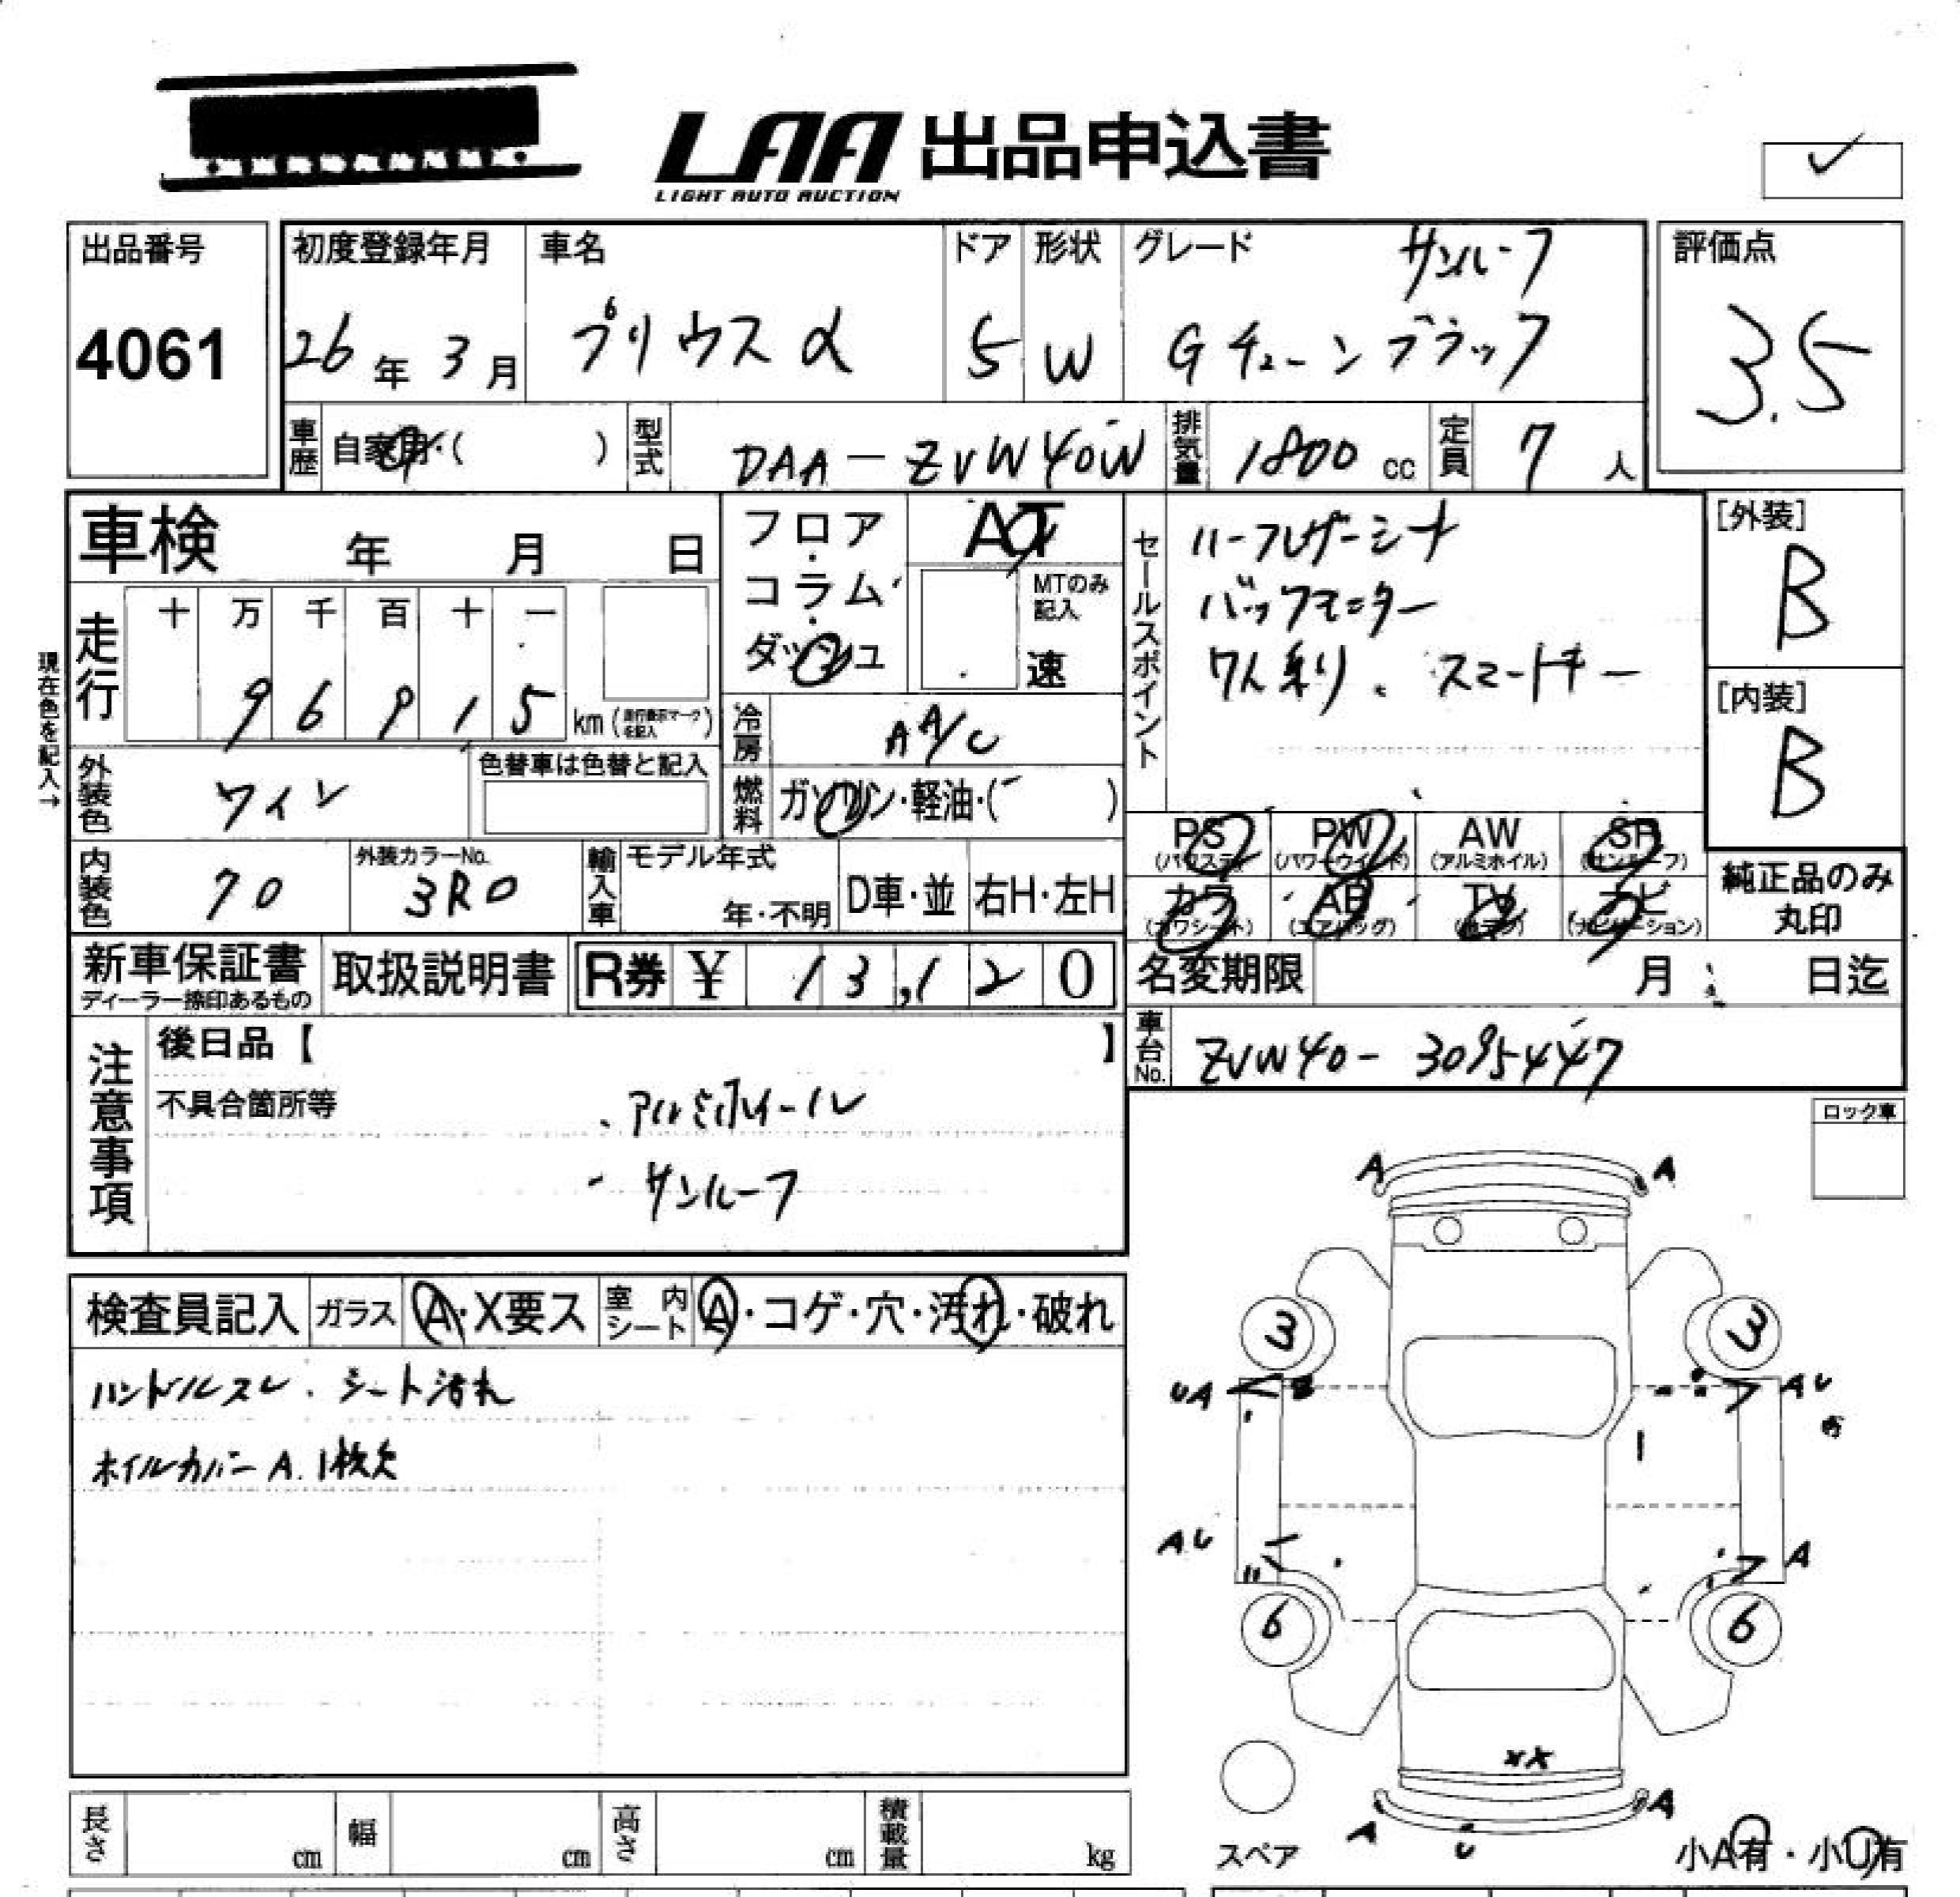 LAA 出品申込書
LIGHT AUTO AUCTION
出品番号
4061
初度登録年月
26年3月
車名
プリウスα
ドア
5
形状
W
グレード
サンルーフ
Gチューンブラック
評価点
3.5
車歴
自家用・( )
型式
DAA-ZVW40W
排気量
1800 cc
定員
7人
車検 年 月 日
フロア・コラム・ダッシュ
AT
MTのみ記入
速
セールスポイント
ハーフレザーシート
バックモニター
7人乗り、スマートキー
[外装]
B
[内装]
B
現在色を記入→
走行
十 万 千 百 十 一
9 6 9 1 5 km (走行表示マークを記入)
冷房
AA/C
外装色
ワイン
色替車は色替と記入
燃料
ガソリン・軽油・( )
内装色
70
外装カラーNo.
3R0
輸入車
モデル年式
年・不明
D車・並
右H・左H
PS
(パワステ)
PW
(パワーウインド)
AW
(アルミホイル)
SR
(サンルーフ)
カワ
(カワシート)
AB
(エアバッグ)
TV
ナビ
(ナビゲーション)
純正品のみ
丸印
新車保証書
ディーラー捺印あるもの
取扱説明書
R券 ¥ 13,120
名変期限 月 日迄
車台No.
ZVW40-3095447
注意事項
後日品【 】
不具合箇所等
、アルミホイール
- サンルーフ
ロック車
検査員記入
ガラス
A・X要ス
室内シート
A・コゲ・穴・汚れ・破れ
ハンドルスレ、シート汚れ
ホイルカバーA.1枚欠
A A
3 3
UA AU
AU A
6 6
XX
A U A
スペア
小A有・小U有
長さ cm
幅 cm
高さ cm
積載量 kg